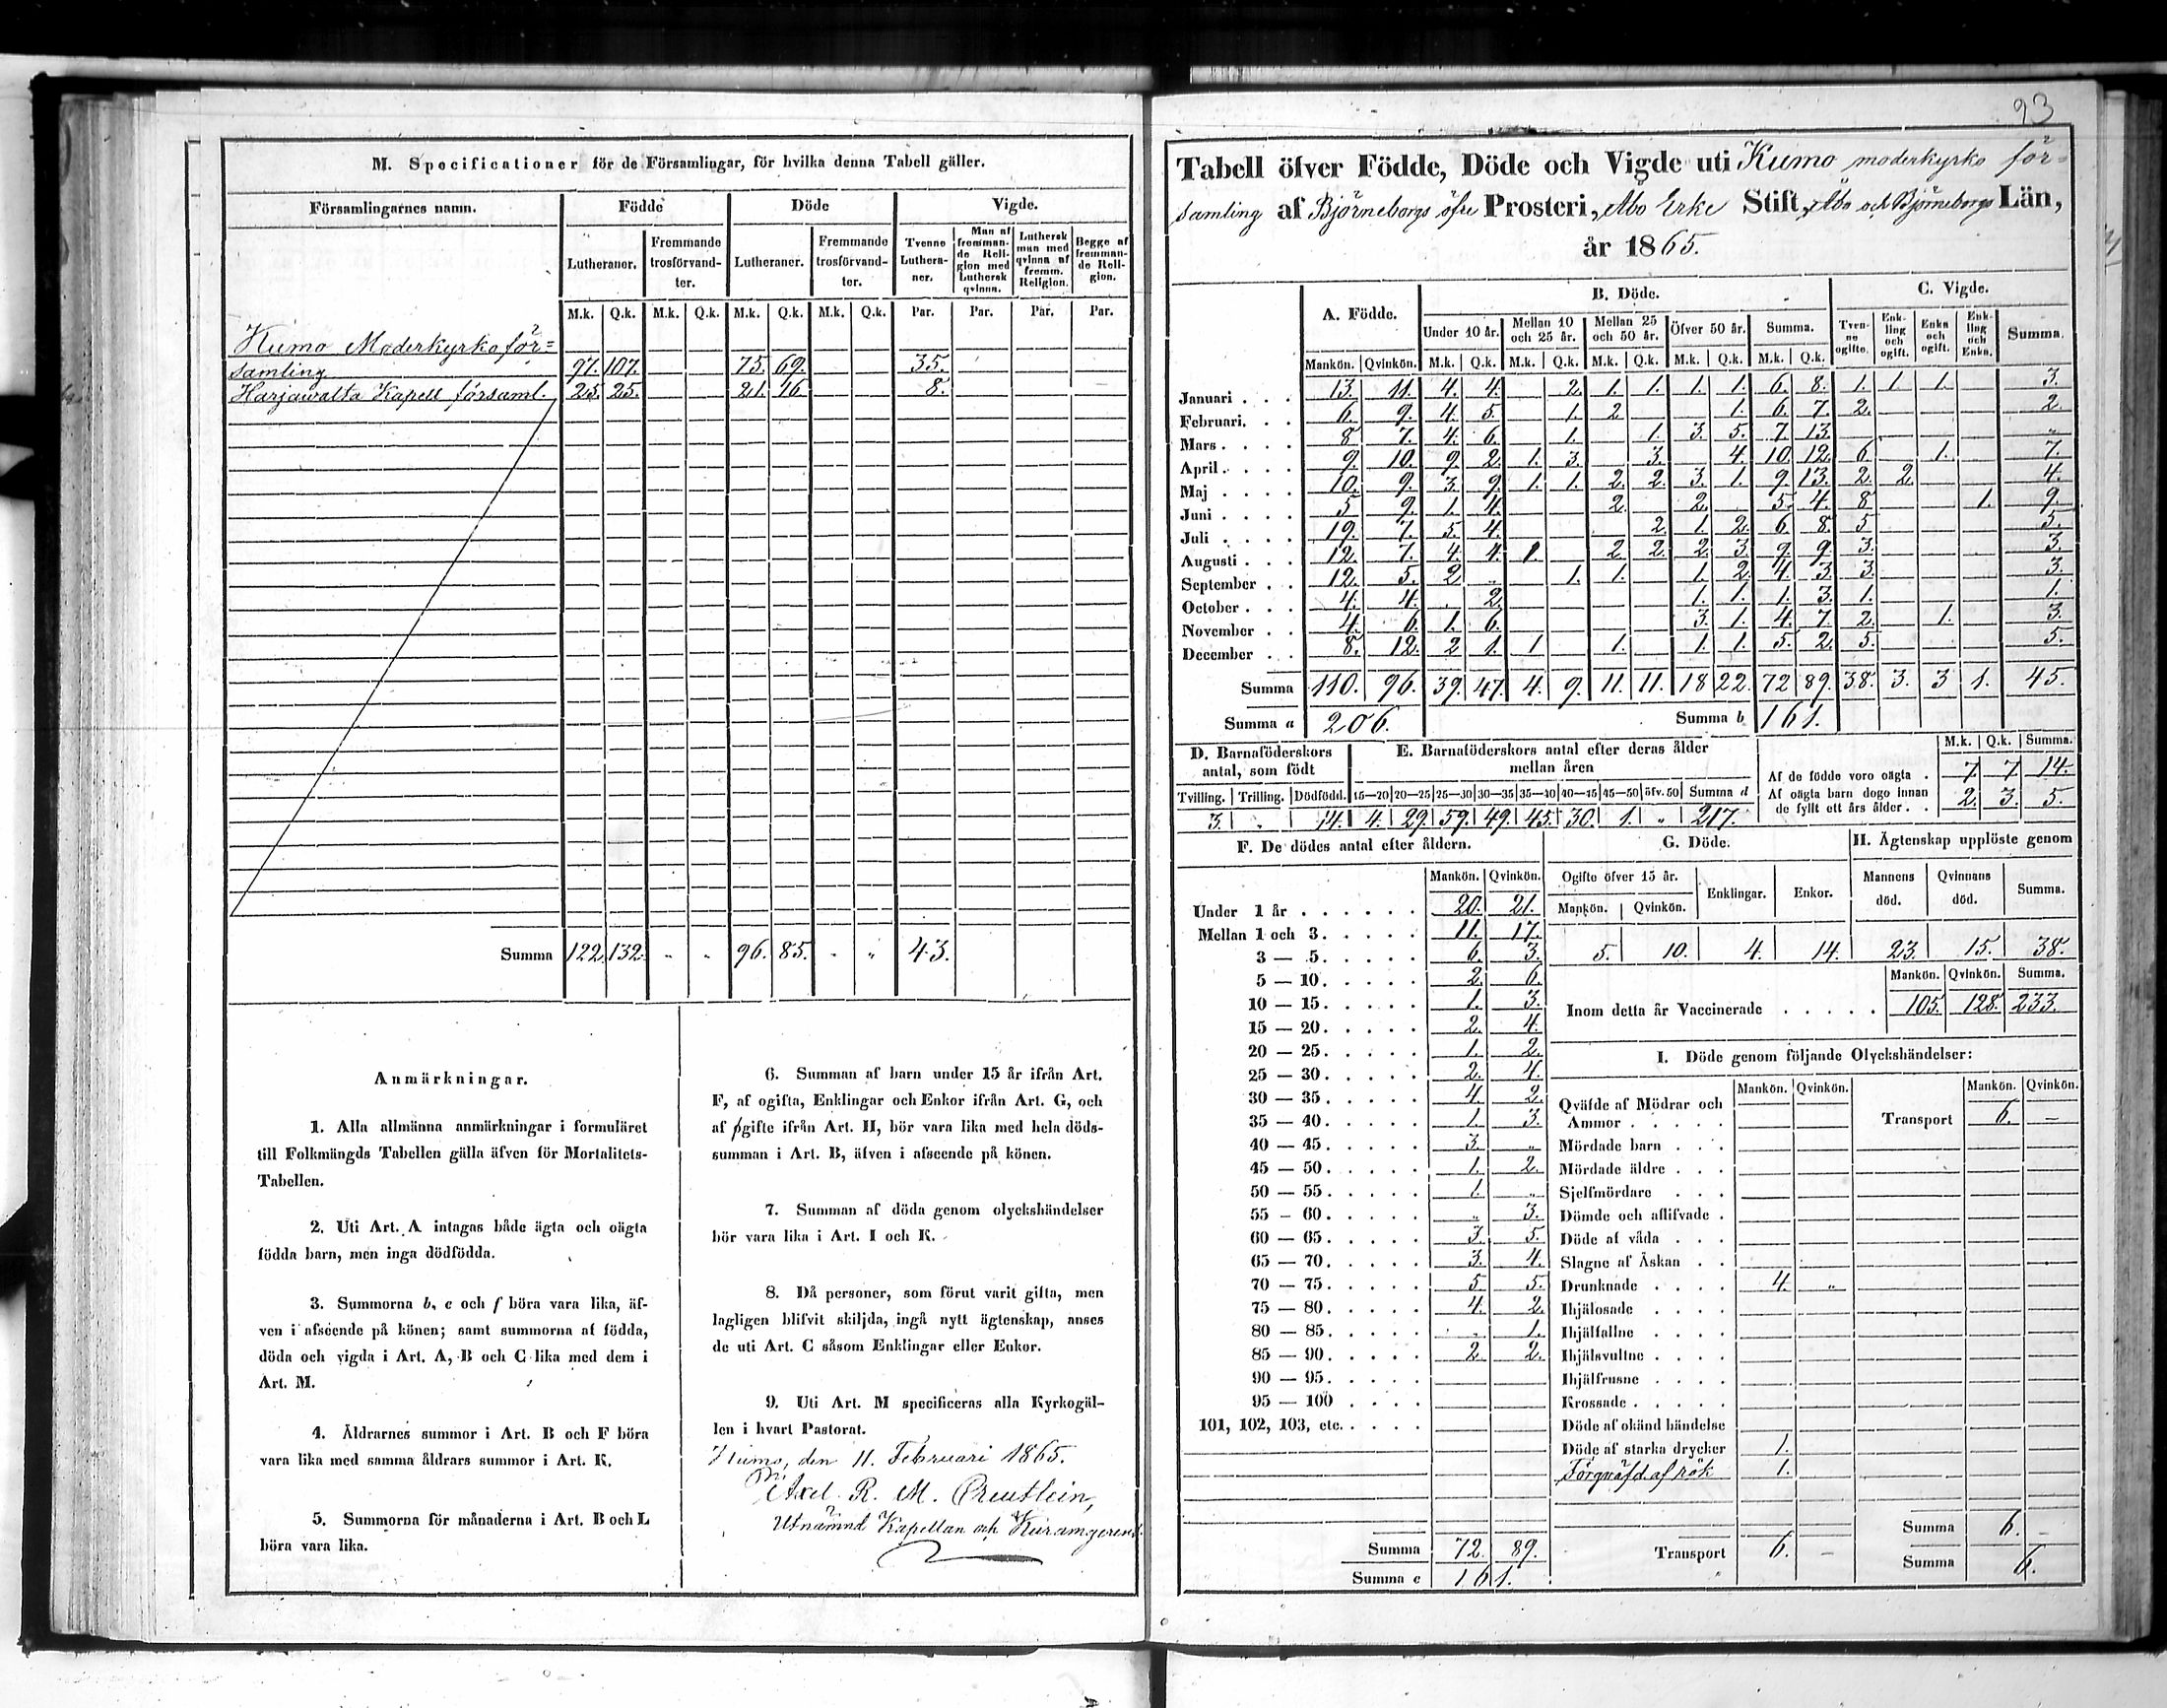 M. Specificationer för de Församlingar, för hvilka denna Tabell gäller.
Församlingarnes namn. Födde Döde Vigde.
Lutheraner. Fremmande trosförvandter. Lutheraner. Fremmande trosförvandter. Tvenne Lutheraner. Man af fremmande Religion med Luthersk qvinna. Luthersk man med qvinna af fremm. Religion. Begge af fremmande Religion.
M.k. Q.k. M.k. Q.k. M.k. Q.k. M.k. Q.k. Par. Par. Par. Par.
Kumo Moderkyrko för=
samling 97. 107. 75. 69. 35.
Harjawalta Kapell församl. 25. 25. 21. 16. 8.
Summa 122. 132. " " 96. 85. " " 43.
Anmärkningar.
1. Alla allmänna anmärkningar i formuläret
till Folkmängds Tabellen gälla äfven för Mortalitets-
Tabellen.
2. Uti Art. A intagas både ägta och oägta
födda barn, men inga dödfödda.
3. Summorna b, c och f böra vara lika, äf-
ven i afseende på könen; samt summorna af födda,
döda och vigda i Art. A, B och C lika med dem i
Art. M.
4. Åldrarnes summor i Art. B och F böra
vara lika med samma åldrars summor i Art. K.
5. Summorna för månaderna i Art. B och L
böra vara lika.
6. Summan af barn under 15 år ifrån Art.
F, af ogifta, Enklingar och Enkor ifrån Art. G, och
af gifte ifrån Art. H, bör vara lika med hela döds-
summan i Art. B, äfven i afseende på könen.
7. Summan af döda genom olyckshändelser
bör vara lika i Art. I och K.
8. Då personer, som förut varit gifta, men
lagligen blifvit skiljda, ingå nytt ägtenskap, anses
de uti Art. C såsom Enklingar eller Enkor.
9. Uti Art. M specificeras alla Kyrkogäl-
len i hvart Pastorat.
Kumo, den 11. Februari 1865.
Axel R. M. Creutlein,
Utnämnd Kapellan och
93
Tabell öfver Födde, Döde och Vigde uti Kumo moderkyrko för=
samling af Björneborgs öfre Prosteri, Åbo Erke Stift, Åbo och Björneborgs Län,
år 1865.
A. Födde. B. Döde. C. Vigde.
Under 10 år. Mellan 10 och 25 år. Mellan 25 och 50 år. Öfver 50 år. Summa. Tvenne ogifte. Enkling och ogift. Enka och ogift. Enkling och Enka. Summa.
Mankön. Qvinkön. M.k. Q.k. M.k. Q.k. M.k. Q.k. M.k. Q.k. M.k. Q.k.
Januari . . . 13. 11. 4. 4. 2. 1. 1. 1. 1. 6. 8. 1. 1 1. 3.
Februari. . . 6. 9. 4. 5. 1. 2 1. 6. 7. 2. 2.
Mars . . . . 8 7. 4. 6. 1. 1. 3. 5. 7. 13. "
April . . . . 9. 10. 9. 2. 1. 3. 3. 4. 10. 12. 6. 1. 7.
Maj . . . . 10. 9. 3. 9. 1. 1. 2. 2. 3. 1. 9. 13. 2. 2. 4.
Juni . . . . 5 9. 1. 4. 2. 2. 5. 4. 8 1. 9.
Juli . . . . 19. 7. 5. 4. 2. 1. 2. 6. 8. 5 5.
Augusti . . . 12. 7. 4. 4. 1. 2. 2. 2. 3. 9. 9. 3. 3.
September . . 12. 5. 2 " 1. 1. 1. 2. 4. 3. 3. 3.
October . . . 4. 4. . 2. 1. 1. 1. 3. 1. 1.
November . . 4. 6. 1. 6. 3. 1. 4. 7. 2. 1. 3.
December . . 8. 12. 2 1. 1 1. 1. 1. 5. 2. 5. 5.
Summa 110. 96. 39. 47. 4. 9. 11. 11. 18 22. 72 89. 38. 3. 3 1. 45.
Summa a 206. Summa b 161.
D. Barnaföderskors antal, som födt
E. Barnaföderskors antal efter deras ålder mellan åren
Tvilling. Trilling. Dödfödd. 15—20 20—25 25—30 30—35 35—40 40—45 45—50 öfv. 50 Summa d
3. " 14. 4. 29. 59. 49. 45. 30. 1. " 217.
M.k. Q.k. Summa.
Af de födde voro oägta . 7. 7. 14.
Af oägta barn dogo innan de fyllt ett års ålder . . 2. 3. 5.
F. De dödes antal efter åldern.
Mankön. Qvinkön.
Under 1 år . . . . . . 20. 21.
Mellan 1 och 3. . . . . 11. 17.
3 — 5. . . . . 6. 3.
5 — 10. . . . . 2. 6.
10 — 15. . . . . 1. 3.
15 — 20. . . . . 2. 4.
20 — 25. . . . . 1. 2.
25 — 30. . . . . 2. 4.
30 — 35. . . . . 4. 2.
35 — 40. . . . . 1. 3.
40 — 45. . . . . 3. "
45 — 50. . . . . 1. 2.
50 — 55. . . . . 1. "
55 — 60. . . . . " 3.
60 — 65. . . . . 3. 5.
65 — 70. . . . . 3. 4.
70 — 75. . . . . 5. 5.
75 — 80. . . . . 4. 2.
80 — 85. . . . . " 1.
85 — 90. . . . . 2 2.
90 — 95. . . . .
95 — 100 . . . .
101, 102, 103, etc. . . . .
Summa 72. 89.
Summa c 161.
G. Döde. H. Ägtenskap upplöste genom
Ogifte öfver 15 år. Enklingar. Enkor. Mannens död. Qvinnans död. Summa.
Mankön. Qvinkön.
5. 10. 4. 14. 23. 15. 38.
Mankön. Qvinkön. Summa.
Inom detta år Vaccinerade . . . . . 105. 128. 233.
I. Döde genom följande Olyckshändelser:
Mankön. Qvinkön. Mankön. Qvinkön.
Qväfde af Mödrar och Ammor . . . . . Transport 6. —
Mördade barn . . .
Mördade äldre . . .
Sjelfmördare . . .
Dömde och aflifvade .
Döde af våda . . .
Slagne af Åskan . .
Drunknade . . . . 4. "
Ihjälosade . . . .
Ihjälfallne . . . .
Ihjälsvultne . . . .
Ihjälfrusne . . . .
Krossade . . . . .
Döde af okänd händelse
Döde af starka drycker 1.
Förqväfd af rök 1.
Summa 6. —
Transport 6. — Summa 6.